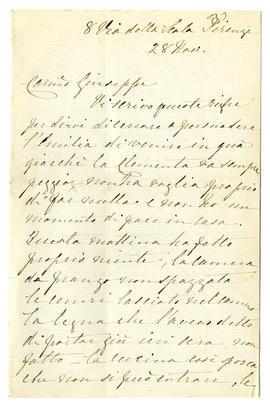 8 Via della Scala Firenze
28 Nov.
Carmo Giuseppe
Vi scrivo queste righe
per dirvi di cercare a persuadere
l'Emilia di venire in qua
giacchè la Clementa va sempre
peggio, non ha voglia proprio
di far nulla e non ho un
momento di pace in casa.
Questa mattina ha fatto
proprio niente, la camera
da pranzo non spazzata
le ceneri lasciate nel camino
la legna che l'aveo detto
di portar giù ieri sera, non
fatto la cucina così sporca
che non si può entrare, le